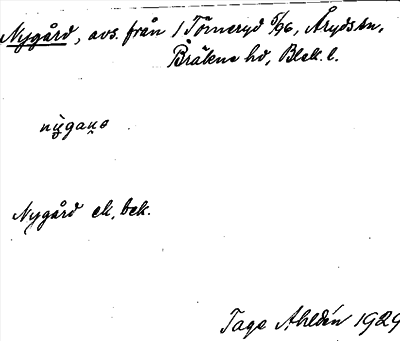 Nygård, avs. från 1 Törneryd 5/96, Åryds sn,
Bräkne hd, Blek. l.
Nygård ek, bek.
Tage Ahldén 1929